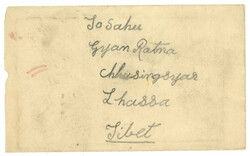 To Sahu
Gyan Ratna
Chhusingsyar
Lhassa
Tibet